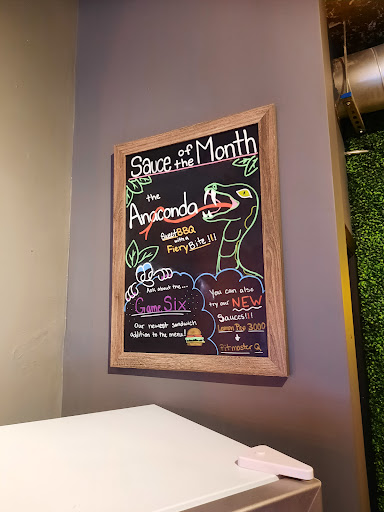 Sauce of the Month
the
Anaconda
Sweet BBQ
with a
Fiery Bite!!!
Ask about the...
Game Six
Our newest sandwich
addition to the menu!
You can also
try our NEW
Sauces!!!
Lemon Pep 3000
+
Fitmaster Q